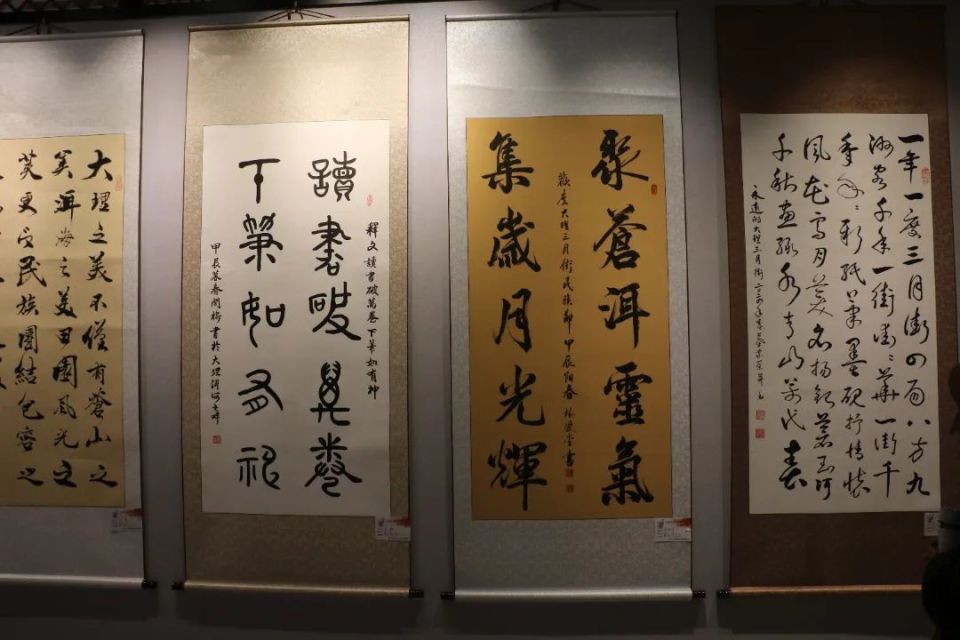 一年一度三月街四面八方九
洲客千年一街街
彩紙筆墨硯抒情懷
風花雪月美名揚銀蒼玉洱
千秋畫緣水青山萬代春
永遠的大理三月街
聚蒼洱靈氣
歡度大理三月街民族節 甲辰陽春 書
集歲月光輝
釋文 讀書破萬卷 下筆如有神
讀書破萬卷
下筆如有神
甲辰暮春 書於大理洱海之畔
大理之美不僅有蒼山之
美洱海之美田園風光之
美更 民族團結包容之